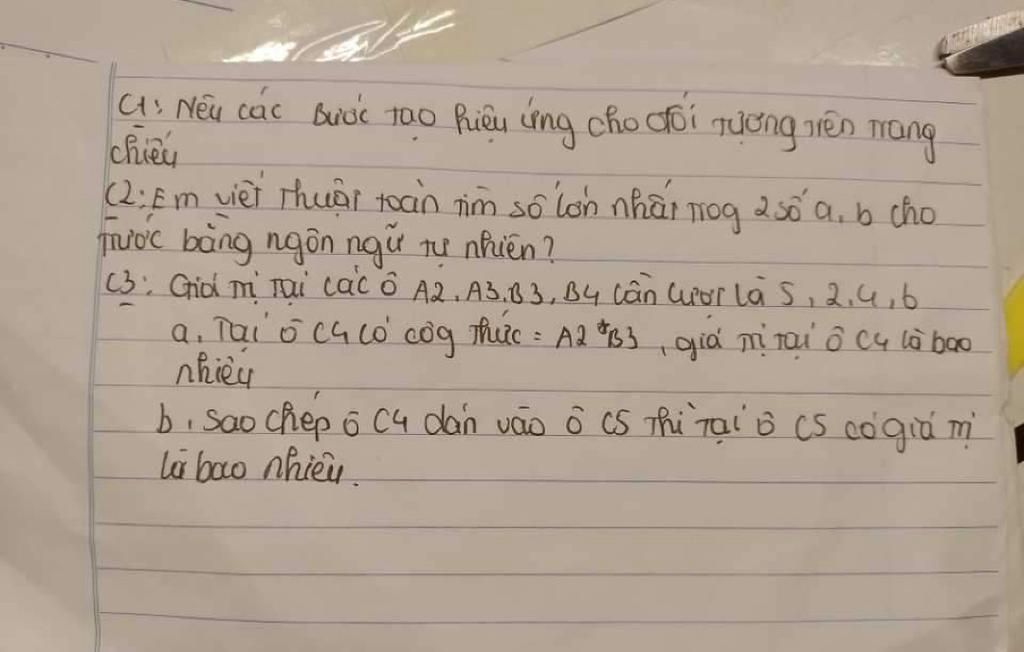 C1: Nêu các bước tạo hiệu ứng cho đối tượng trên trang
chiếu
C2: Em viết thuật toán tìm số lớn nhất trog 2 số a, b cho
trước bằng ngôn ngữ tự nhiên?
C3: Giá trị tại các ô A2, A3, B3, B4 lần lượt là 5, 2, 4, 6
a, Tại ô C4 có côg thức = A2 *B3, giá trị tại ô C4 là bao
nhiêu
b, Sao chép ô C4 dán vào ô C5 thì tại ô C5 có giá trị
là bao nhiêu.